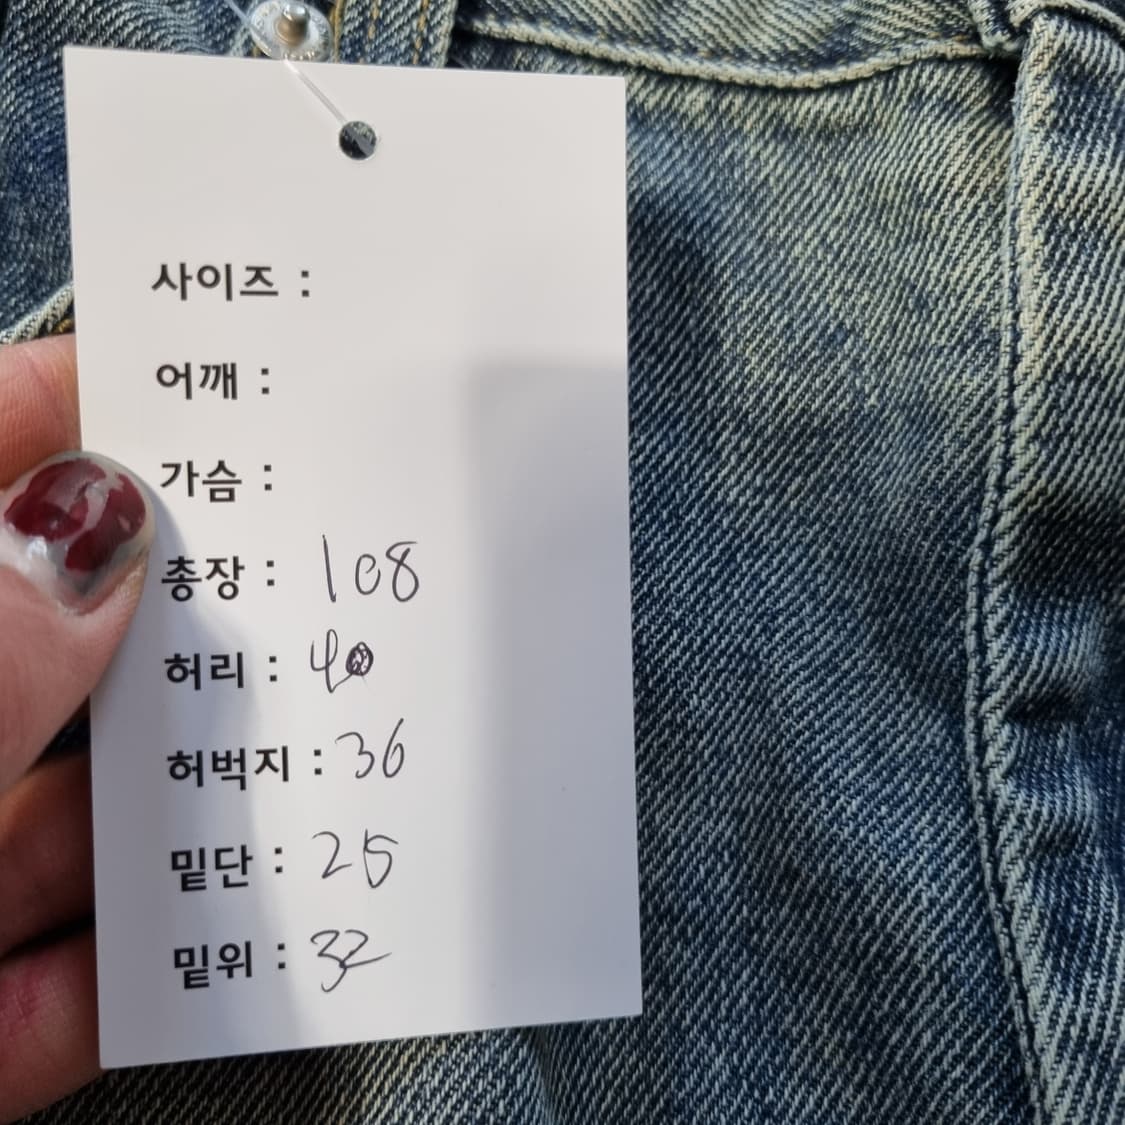 사이즈 :
어깨 :
가슴 :
총장 : 108
허리 : 40
허벅지 : 36
밑단 : 25
밑위 : 32